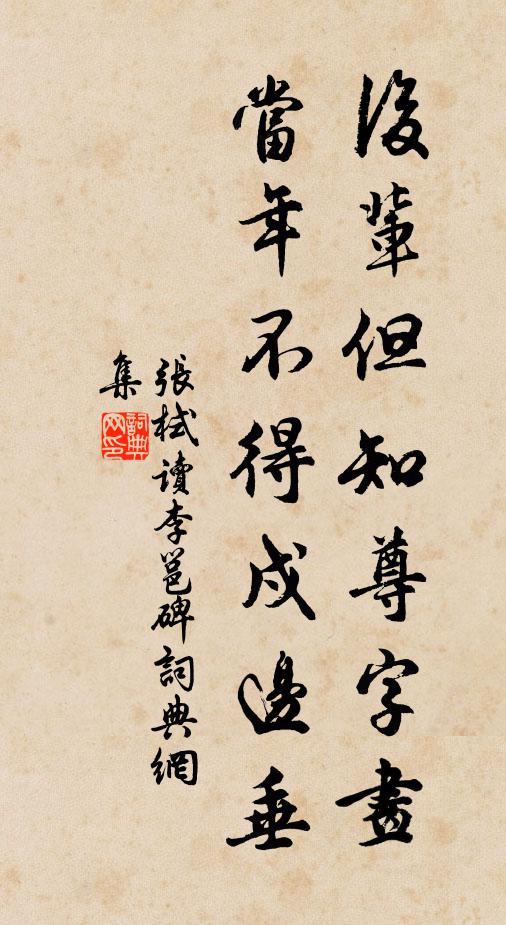 後輩但知尊字畫
當年不得戍邊垂
張栻讀李邕碑詞典網
集
詞典
网印